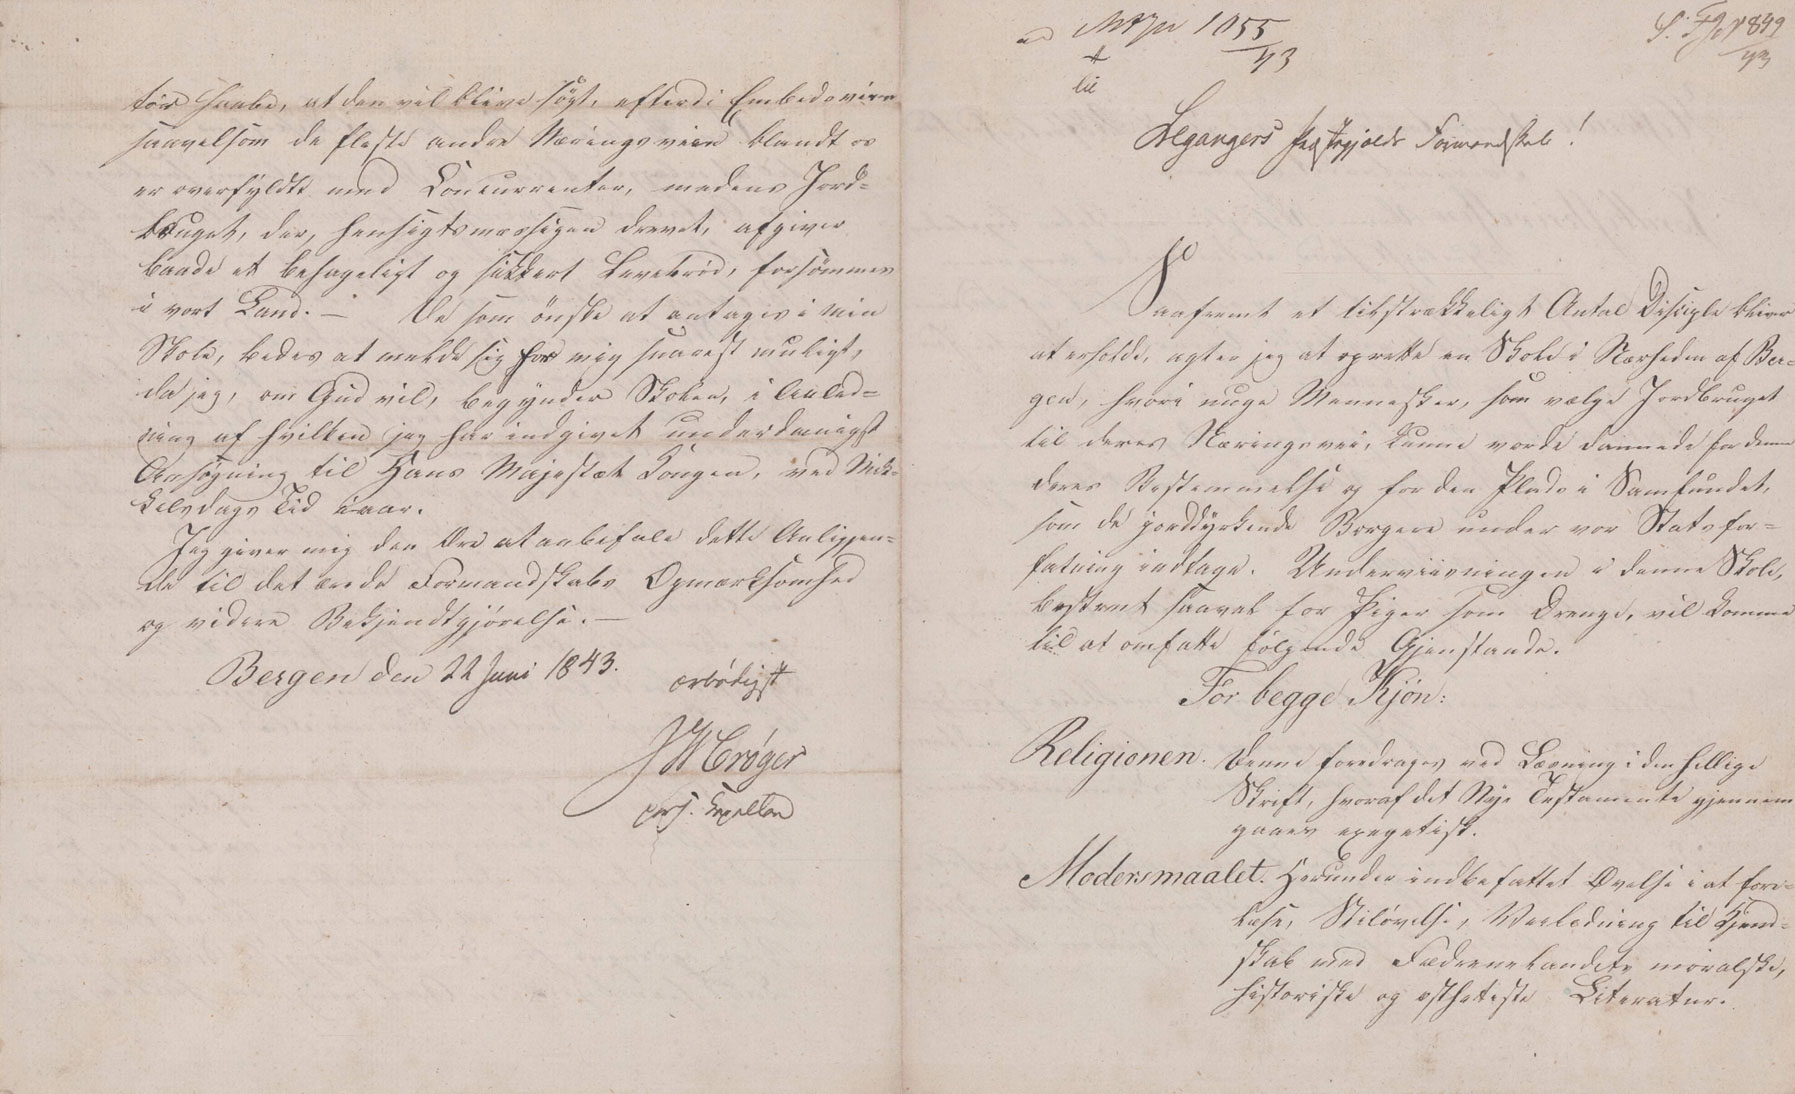 tør haabe, at den vil blive søgt, efterdi Embedsveien
saavelsom de fleste andre Næringsveie blandt os
er overfyldte med Concurrenter, medens Jord=
bruget, der, hensigtsmæssigen drevet, afgiver
baade et behageligt og sikkert Levebrød, forsømmes
i vort Land. — De som ønske at antages i min
Skole, bedes at melde sig for mig snarest muligt,
da jeg, om Gud vil, begynder Skolen, i Anled=
ning af hvilken jeg har indgivet underdanigst
Ansøgning til Hans Majestæt Kongen, ved Mik=
kelsdags Tid iaar.
Jeg giver mig den Ære at anbefale dette Anliggen=
de til det ærede Formandskabs Opmærksomhed
og videre Bekjendtgjørelse. —
Bergen den 22 Juni 1843.
ærbødigst
JW Crøger
pers. Capellan
1055
43
til
849
43
Leganger Præstegjelds Formandskab!
Saafremt et tilstrækkeligt Antal Disciple bliver
at erholde, agter jeg at oprette en Skole i Nærheden af Ber=
gen, hvori unge Mennesker, som vælge Jordbruget
til deres Næringsvei, kunne vorde dannede for denne
deres Bestemmelse og for den Plads i Samfundet,
som de jorddyrkende Borgere under vor Statsfor=
fatning indtage. Underviisningen i denne Skole,
bestemt saavel for Piger som Drenge, vil komme
til at omfatte følgende Gjenstande.
For begge Kjøn:
Religionen. Denne foredrages ved Læsning i den hellige
Skrift, hvoraf det Nye Testamente gjennem
gaaes exegetisk.
Modersmaalet. Herunder indbefattet Øvelse i at fore=
læse, Stiløvelse, Veiledning til Kjend=
skab med Fædrenelandets moralske,
historiske og æsthetiske Literatur.